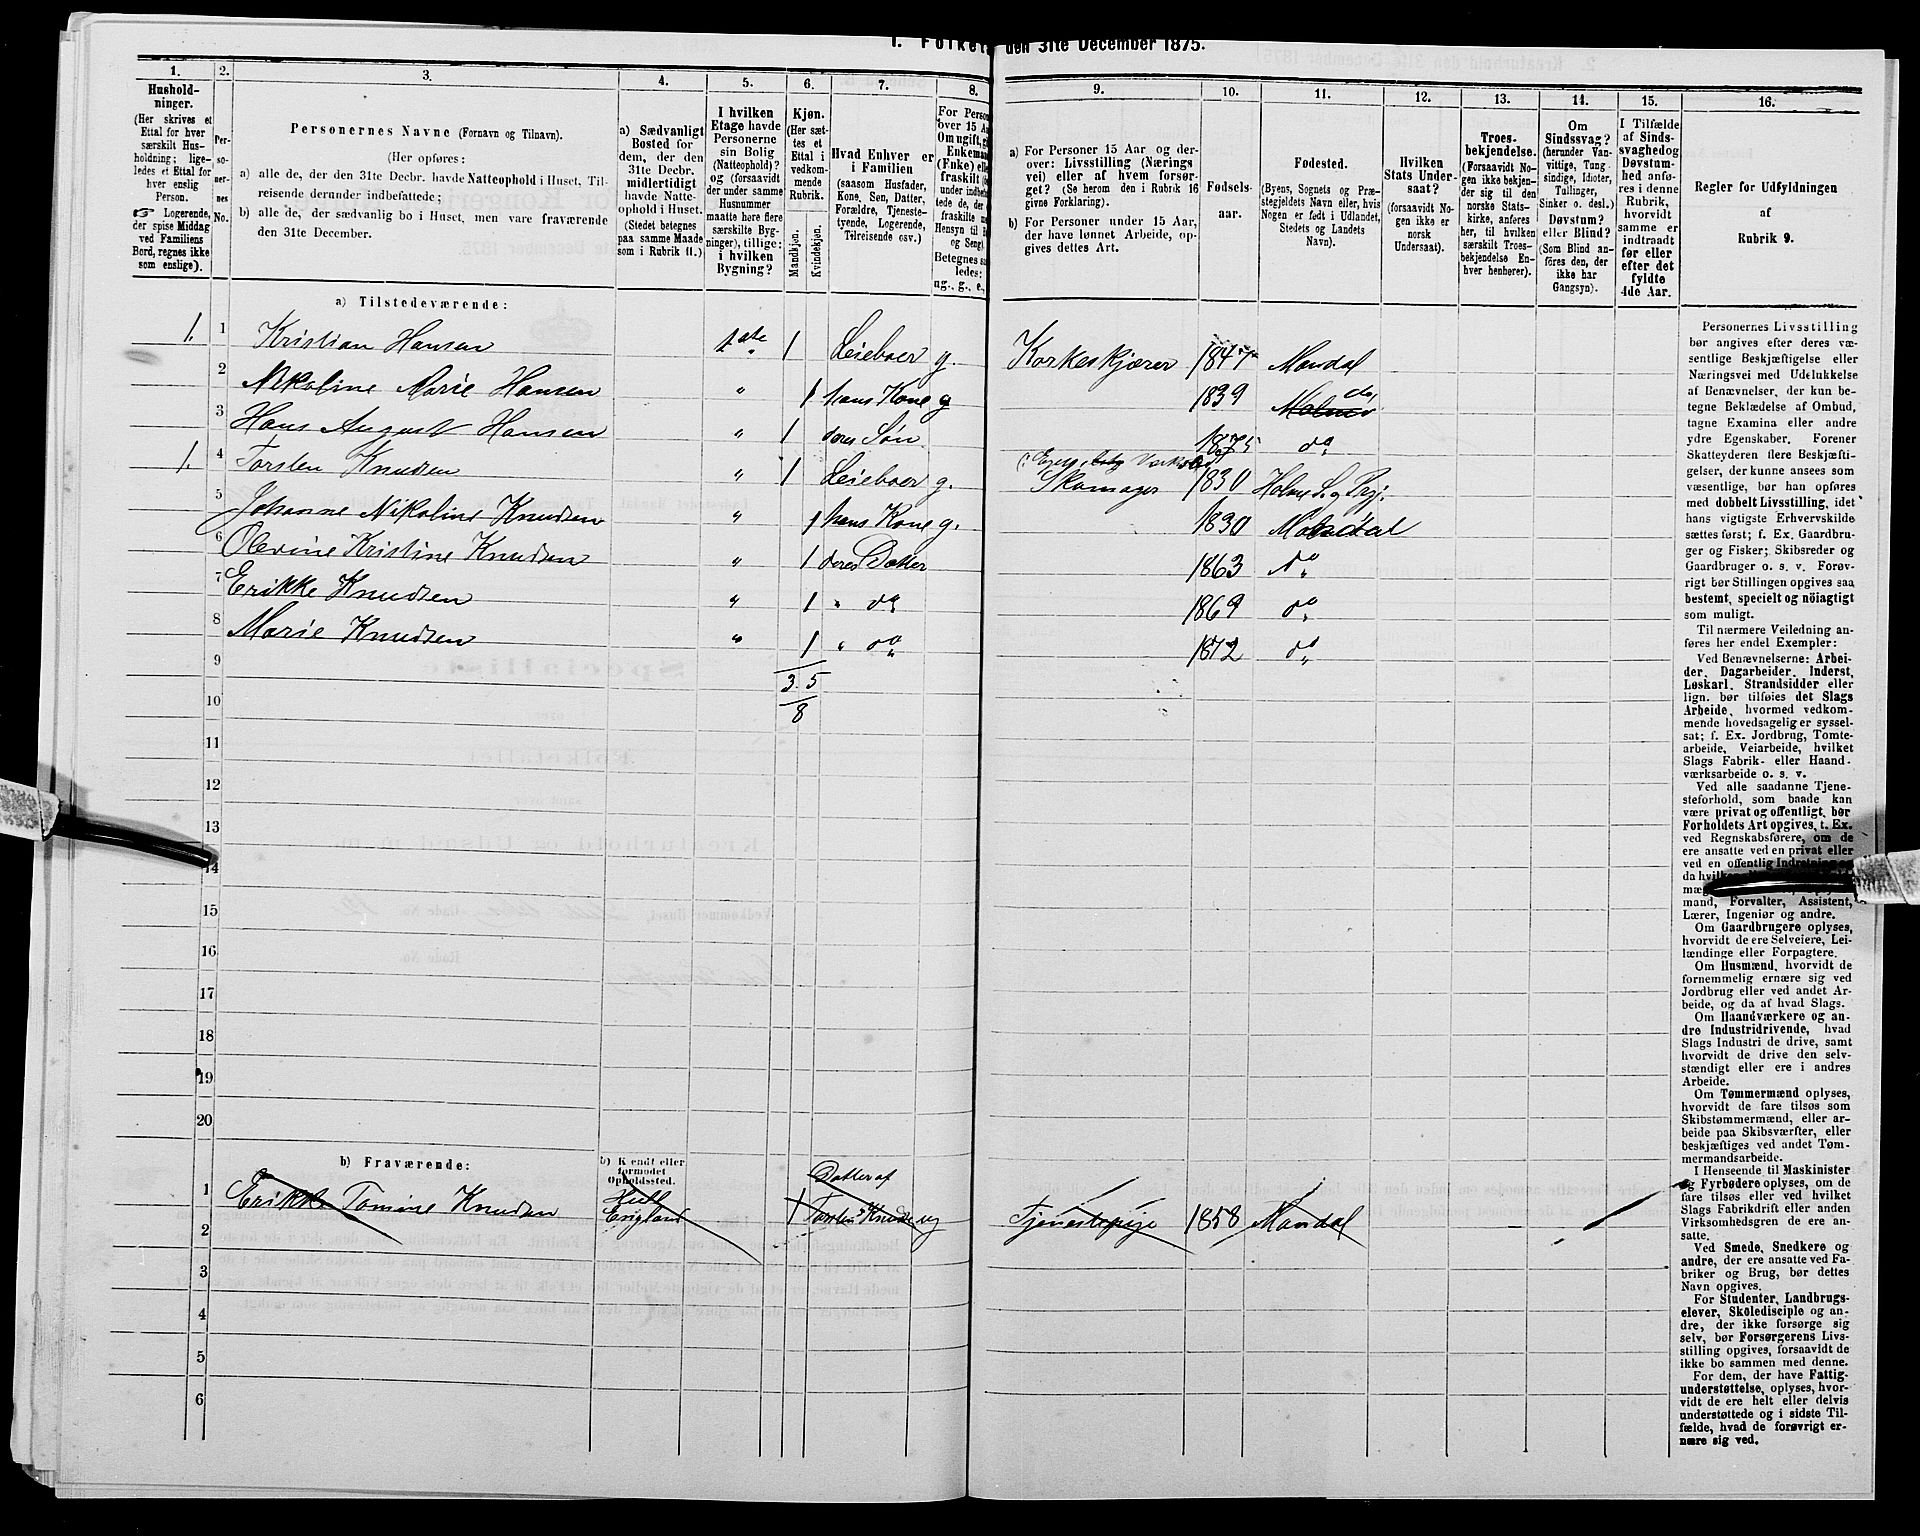 1. Folket den 31te December 1875.
1. 2. 3. 4. 5. 6. 7. 8. 9. 10. 11. 12. 13. 14. 15. 16.
Hushold-
ninger.
(Her skrives et
Ettal for hver
særskilt Hus-
holdning; lige-
ledes et Ettal for
hver enslig
Person.
☞ Logerende,
der spise Middag
ved Familiens
Bord, regnes ikke
som enslige).
Per-
so-
ner-
nes
No.
Personernes Navne (Fornavn og Tilnavn).
(Her opføres:
a) alle de, der den 31te Decbr. havde Natteophold i Huset, Til-
reisende derunder indbefattede;
b) alle de, der sædvanlig bo i Huset, men vare fraværende
den 31te December.
a) Sædvanligt
Bosted for
dem, der den
31te Decbr.
midlertidigt
havde Natte-
ophold i Huset.
(Stedet betegnes
paa samme Maade
som i Rubrik 11.)
I hvilken
Etage havde
Personerne
sin Bolig
(Natteophold)?
og (forsaavidt
der under samme
Husnummer
maatte høre flere
særskilte Byg-
ninger), tillige:
i hvilken
Bygning?
Kjøn.
(Her sæt-
tes et
Ettal i
vedkom-
mende
Rubrik.
Mandkjøn.
Kvindekjøn.
Hvad Enhver er
i Familien
(saasom Husfader,
Kone, Søn, Datter,
Forældre, Tjeneste-
tyende, Logerende,
Tilreisende osv.)
For Perso
over 15 Aa
Om ugift, g
Enkeman
(Fnke) ell
fraskilt (o
under indbe
tede de, de
fraskilte m
Hensyn til B
og Seng).
Betegnes sa
ledes:
ug., g., e.,
a) For Personer 15 Aar og der-
over: Livsstilling (Nærings
vei) eller af hvem forsør-
get? (Se herom den i Rubrik 16
givne Forklaring).
b) For Personer under 15 Aar,
der have lønnet Arbeide, op-
gives dettes Art.
Fødsels-
aar.
Fødested.
(Byens, Sognets og Præ-
stegjeldets Navn eller, hvis
Nogen er født i Udlandet,
Stedets og Landets
Navn).
Hvilken
Stats Under-
saat?
(forsaavidt No-
gen ikke er
norsk
Undersaat).
Troes-
bekjendelse.
(Forsaavidt No-
gen ikke bekjen-
der sig til den
norske Stats-
kirke, anføres
her, til hvilken
særskilt Troes-
bekjendelse En-
hver henhører).
Om
Sindssvag?
(herunder Van-
vittige, Tung-
sindige, Idioter,
Tullinger,
Sinker o. desl.)
Døvstum?
eller Blind?
(Som Blind an-
føres den, der
ikke har
Gangsyn).
I Tilfælde
af Sinds-
svaghed og
Døvstum-
hed anfø-
res i denne
Rubrik,
hvorvidt
samme er
indtraadt
før eller
efter det
fyldte
4de Aar.
Regler for Udfyldningen
af
Rubrik 9.
a) Tilstedeværende:
1. 1 Kristian Hansen 1ste 1 Leieboer g. Korkeskjærer 1847 Mandal
2 Nikoline Marie Hansen " 1 hans Kone g 1839 do.
3 Hans August Hansen " 1 deres Søn 1875 do
1. 4 Torsten Knudsen " 1 Leieboer g. Skomager 1830 Holme S. og Prgj.
5 Johanne Nikoline Knudsen " 1 hans Kone g. 1830 Mandal
6 Olevine Kristine Knudsen " 1 deres Datter 1863 do
7 Erikke Knudsen " 1 " do 1869 do
8 Marie Knudsen " 1 " do 1872 do
9 3. 5
10 8
11
12
13
14
15
16
17
18
19
20
b) Fraværende:
b) Kendt eller
formodet
Opholdssted.
Datter af
1 Erikke Tomine Knudsen Hull England 1 Torsten Knuds. ug Tjenestepige 1858 Mandal
2
3
4
5
6
Personernes Livsstilling
bør angives efter deres væ-
sentlige Beskjæftigelse eller
Næringsvei med Udelukkelse
af Benævnelser, der kun be-
tegne Beklædelse af Ombud,
tagne Examina eller andre
ydre Egenskaber. Forener
Skatteyderen flere Beskjæfti-
gelser, der kunne ansees som
væsentlige, bør han opføres
med dobbelt Livsstilling, idet
hans vigtigste Erhvervskilde
sættes først; f. Ex. Gaardbru-
ger og Fisker; Skibsreder og
Gaardbruger o. s. v. Forøv-
rigt bør Stillingen opgives saa
bestemt, specielt og nöiagtigt
som muligt.
Til nærmere Veiledning an-
føres her endel Exempler:
Ved Benævnelserne: Arbei-
der, Dagarbeider, Inderst,
Løskarl, Strandsidder eller
lign. bør tilføies det Slags
Arbeide, hvormed vedkom-
mende hovedsagelig er syssel-
sat; f. Ex. Jordbrug, Tomte-
arbeide, Veiarbeide, hvilket
Slags Fabrik- eller Haand-
værksarbeide o. s. v.
Ved alle saadanne Tjene-
steforhold, som baade kan
være privat og offentligt, bør
Forholdets Art opgives, t. Ex.
ved Regnskabsførere, om de
ere ansatte ved en privat eller
ved en offentlig
mand, Forvalter, Assistent,
Lærer, Ingeniør og andre.
Om Gaardbrugere oplyses,
hvorvidt de ere Selveiere, Lei-
lændinge eller Forpagtere.
Om Husmænd, hvorvidt de
fornemmelig ernære sig ved
Jordbrug eller ved andet Ar-
beide, og da af hvad Slags.
Om Haandværkere og an-
dre Industridrivende, hvad
Slags Industri de drive, samt
hvorvidt de drive den selv-
stændigt eller ere i andres
Arbeide.
Om Tømmermænd oplyses,
hvorvidt de fare tilsøs som
Skibstømmermænd, eller ar-
beide paa Skibsværfter, eller
beskjæftiges ved andet Tøm-
mermandsarbeide.
I Henseende til Maskinister
og Fyrbødere oplyses, om de
fare tilsøs eller ved hvilket
Slags Fabrikdrift eller anden
Virksomhedsgren de ere an-
satte.
Ved Smede, Snedkere og
andre, der ere ansatte ved Fa-
briker og Brug, bør dettes
Navn opgives.
For Studenter, Landbrugs-
elever, Skoledisciple og an-
dre, der ikke forsørge sig
selv, bør Forsørgerens Livs-
stilling opgives, forsaavidt de
ikke bo sammen med denne.
For dem, der have Fattig-
understøttelse, oplyses, hvor-
vidt de ere helt eller delvis
understøttede og i sidste Til-
fælde, hvad de forøvrigt er-
nære sig ved.